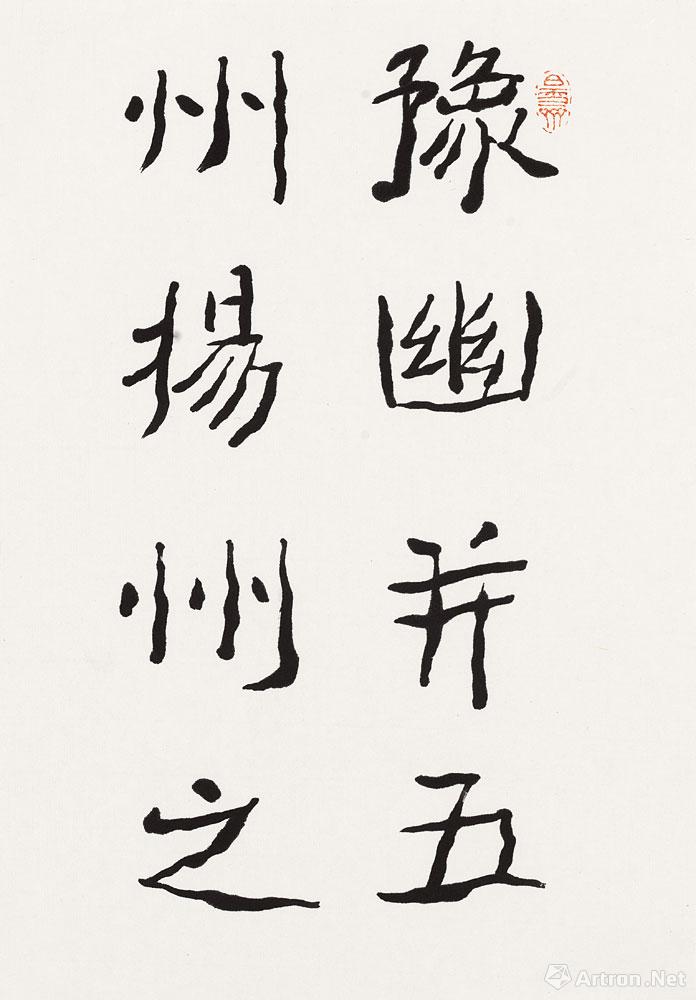 豫幽并五
州揚州之
Artron.Net